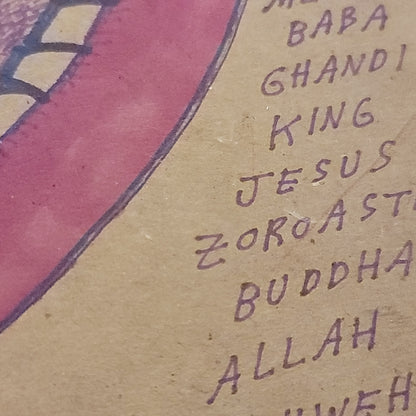 BABA
GHANDI
KING
JESUS
ZOROAST
BUDDHA
ALLAH